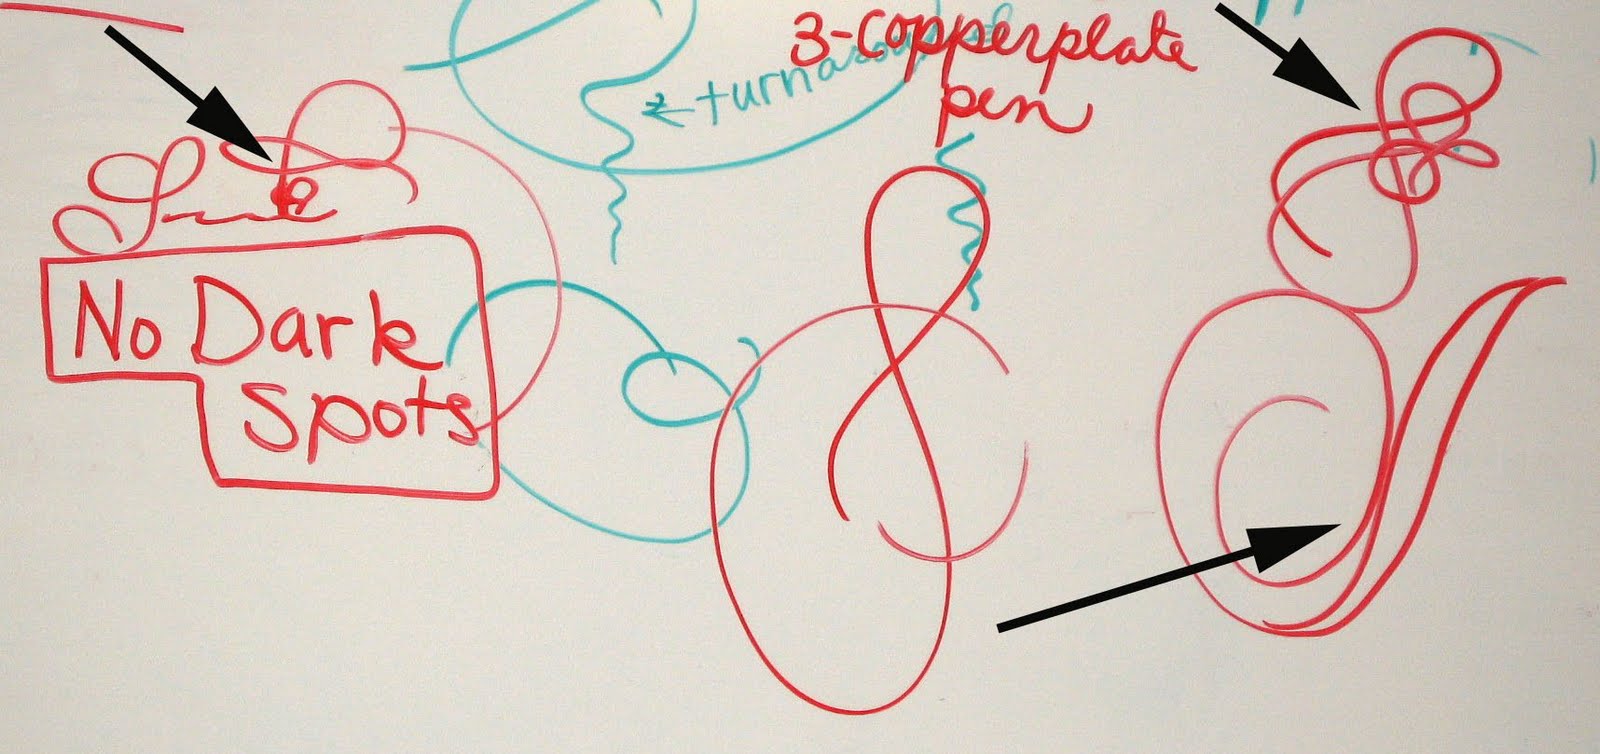 3-copperplate
pen
No Dark
Spots